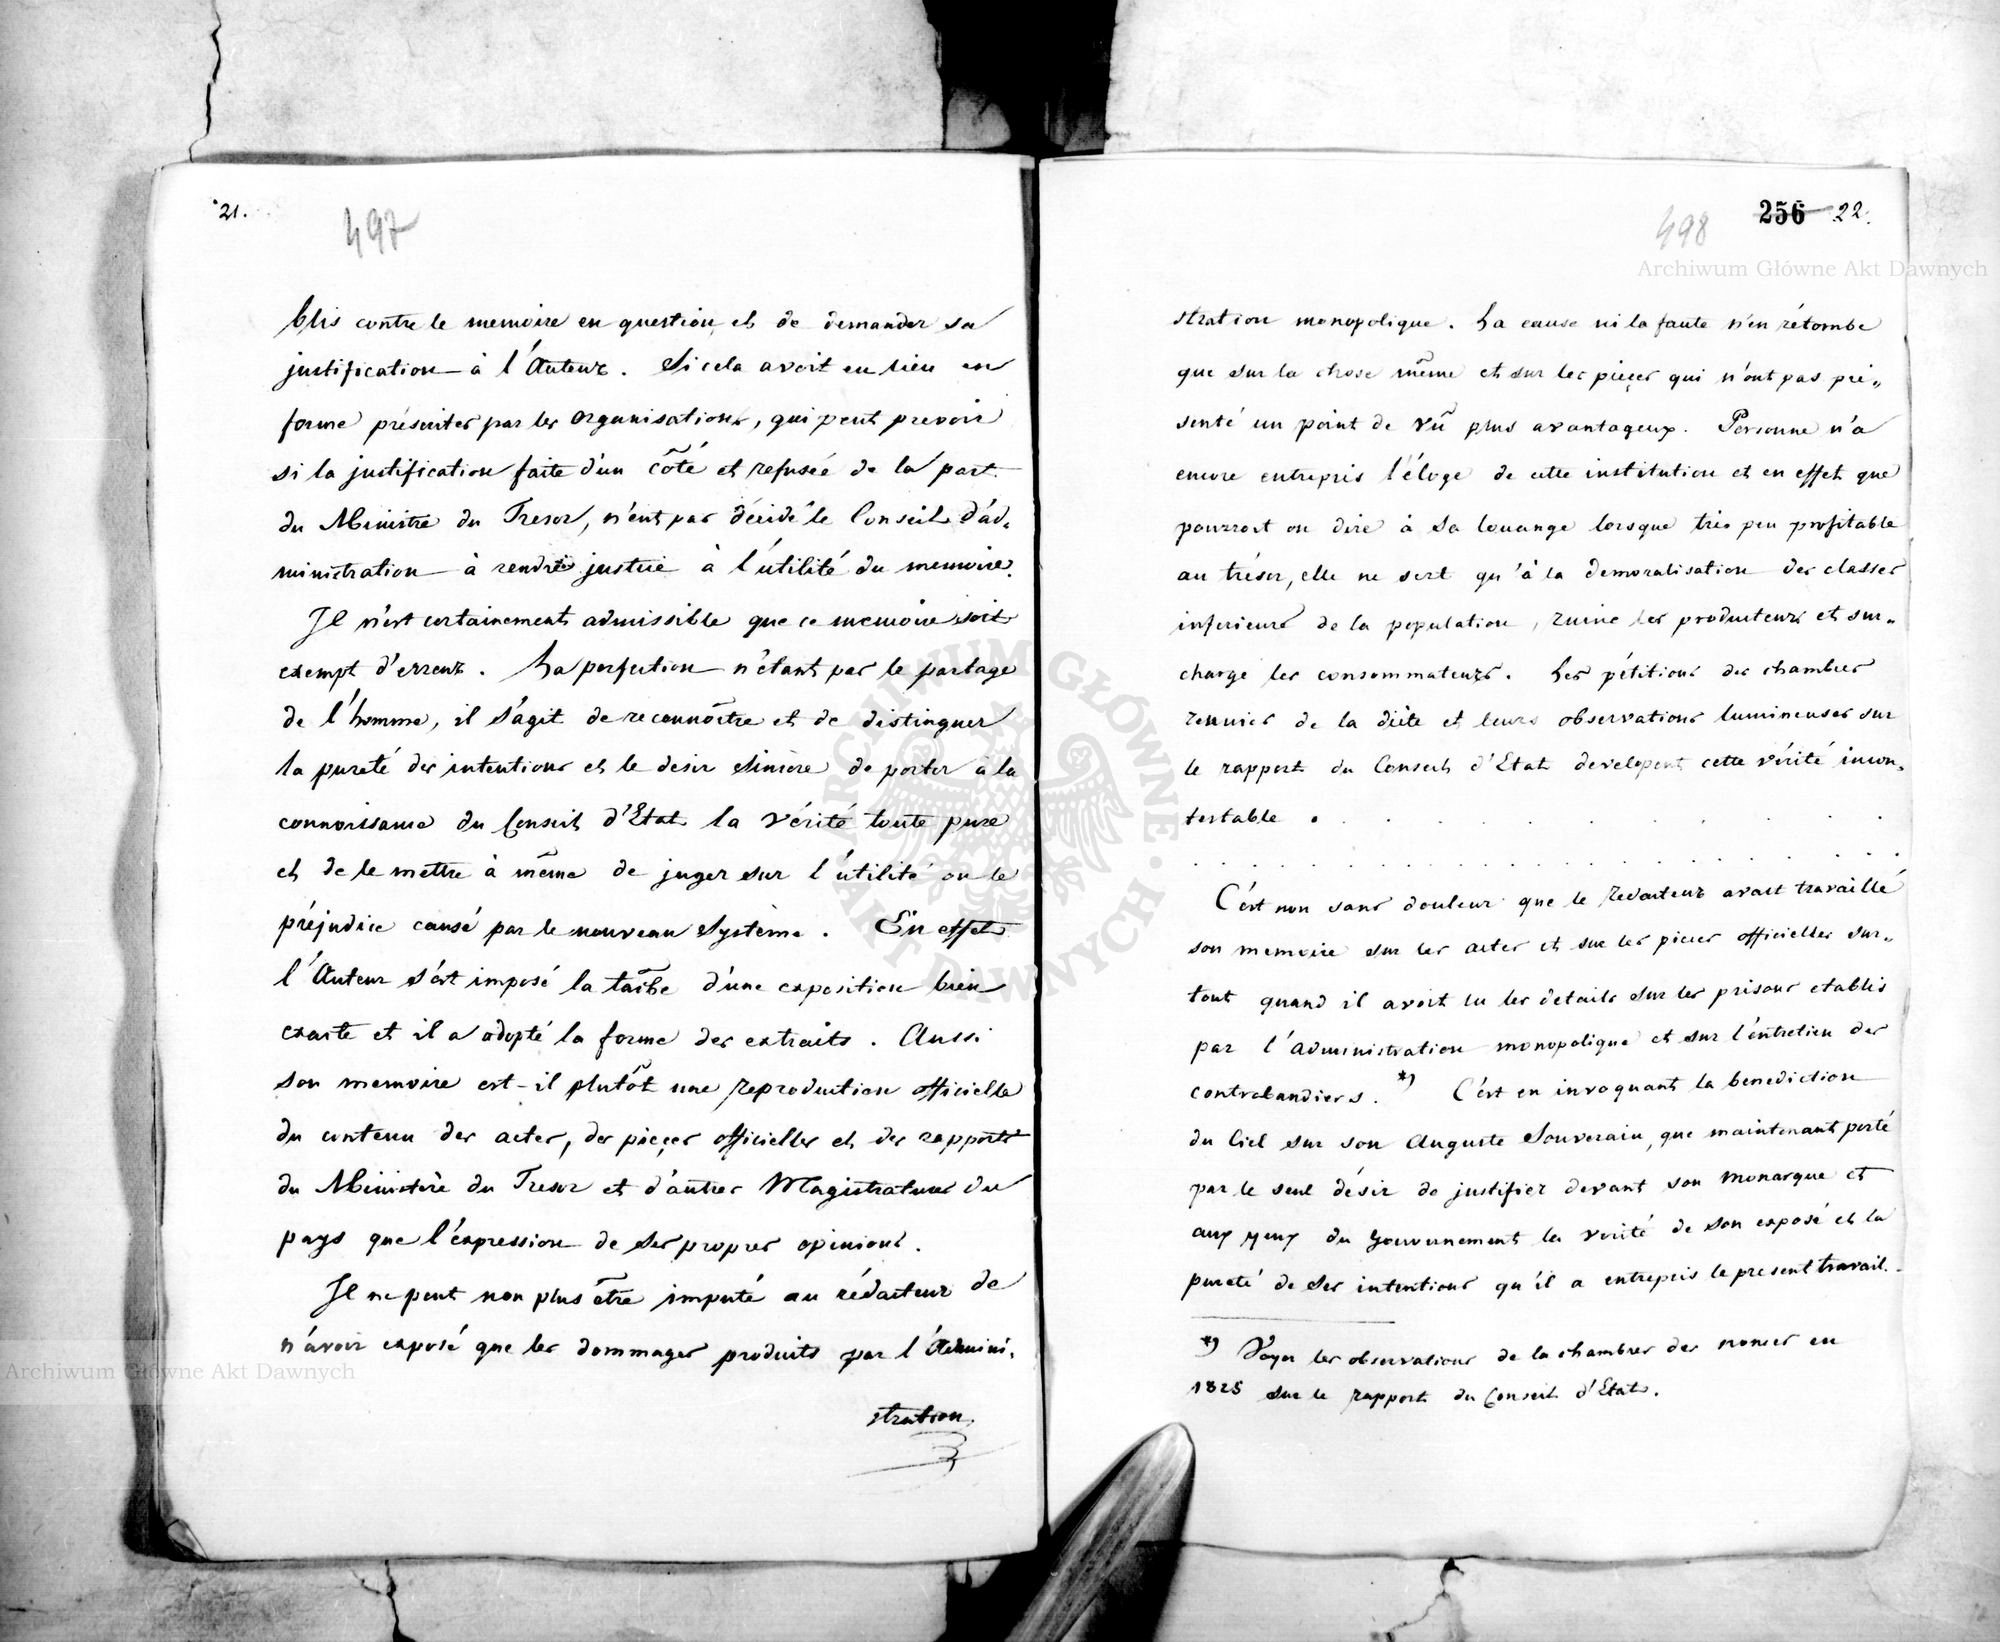 21.
497
blis contre le memoire en question et de demander sa
justification à l'Auteur. Si cela avoit eu lieu en
forme présenter par les organisations, qui peut prevoir
si la justification faite d'un côté et refusée de la part
du Ministre du Tresor, n'eut pas décidé le Conseil d'ad-
ministration à rendre justice à l'utilité du memoire.
Il n'est certainement admissible que ce memoire soit
exempt d'erreur. La perfection n'étant pas le partage
de l'homme, il s'agit de reconnoître et de distinguer
la pureté des intentions et le desir sincère de porter à la
connoissance du Conseil d'Etat la vérité toute pure
et de le mettre à même de juger sur l'utilité ou le
préjudice causé par le nouveau Système. En effet
l'Auteur s'est imposé la tache d'une exposition bien
exacte et il a adopté la forme des extraits. Aussi
son memoire est-il plutôt une reproduction officielle
du contenu des actes, des pieçes officielles et des rapports
du Ministère du Tresor et d'autres Magistratures du
pays que l'expression de ses propres opinions.
Il ne peut non plus être imputé au rédacteur de
n'avoir exposé que les dommages produits par l'Admini-
stration
498 256 22.
Archiwum Główne Akt Dawnych
stration monopolique. La cause ni la faute n'en rétombe
que sur la chose même et sur les pieçes qui n'ont pas pré-
senté un point de vû plus avantageux. Personne n'a
encore entrepris l'éloge de cette institution et en effet que
pourroit on dire à sa louange lorsque très peu profitable
au trésor, elle ne sert qu'à la demoralisation des classes
inferieures de la population, ruine les producteurs et sur-
charge les consommateurs. Les pétitions des chambres
reunies de la diète et leurs observations lumineuses sur
le rapport du Conseil d'Etat developent cette vérité incon-
testable . . . . . . . . . .
. . . . . . . . . . . . . . . . . .
C'est non sans douleur que le redacteur avait travaillé
son memoire sur les actes et sur les pieces officielles sur-
tout quand il avoit lu les details sur les prisons etablis
par l'administration monopolique et sur l'entretien des
contrebandiers. *) C'est en invoquant la benediction
du Ciel sur son Auguste Souverain, que maintenant porté
par le seul désir de justifier devant son monarque et
aux yeux du gouvernement la verité de son exposé et la
pureté de ses intentions qu'il a entrepris le present travail.
*) Voyez les observations de la chambre des nonces en
1825 sur le rapport du Conseil d'Etat.
Archiwum Główne Akt Dawnych
ARCHIWUM GŁÓWNE · AKT DAWNYCH ·